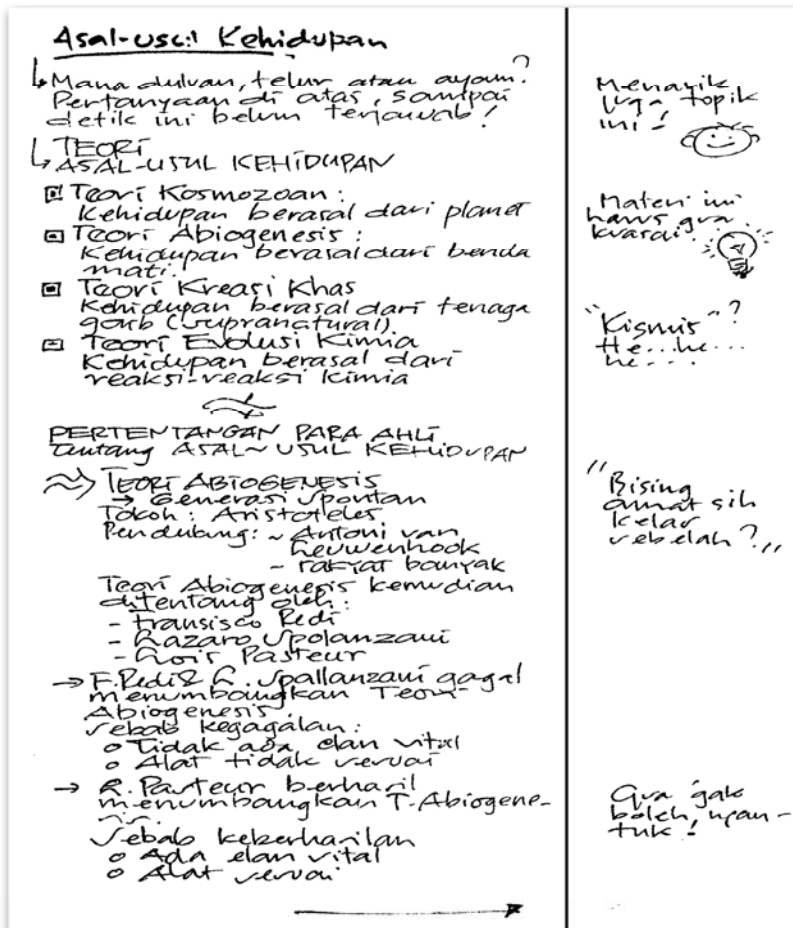 Asal-usul Kehidupan
Mana duluan, telur atau ayam?
Pertanyaan di atas, sampai
detik ini belum terjawab!
TEORI
ASAL-USUL KEHIDUPAN
Teori Kosmozoan:
Kehidupan berasal dari planet
Teori Abiogenesis:
Kehidupan berasal dari benda
mati.
Teori Kreasi Khas
Kehidupan berasal dari tenaga
gaib (supranatural).
Teori Evolusi Kimia
Kehidupan berasal dari
reaksi-reaksi kimia
PERTENTANGAN PARA AHLI
tentang ASAL~USUL KEHIDUPAN
TEORI ABIOGENESIS
→ Generasi Spontan
Tokoh: Aristoteles
Pendukung: ~ Antoni van
Leuwenhook
- rakyat banyak
Teori Abiogenesis kemudian
ditentang oleh:
- Fransisco Redi
- Lazaro Spolanzani
- Lois Pasteur
→ F. Redi & L. Spallanzani gagal
menumbangkan Teori
Abiogenesis.
Sebab kegagalan:
o Tidak ada elan vital
o Alat tidak sesuai
→ L. Pasteur berhasil
menumbangkan T. Abiogene-
sis.
Sebab keberhasilan
o Ada elan vital
o Alat sesuai
Menarik
juga topik
ini!
Materi ini
harus gua
kuasai.
"Kismis"?
He...he...
he...
"Bising
amat sih
kelas
sebelah?"
Gua gak
boleh, ngan-
tuk!